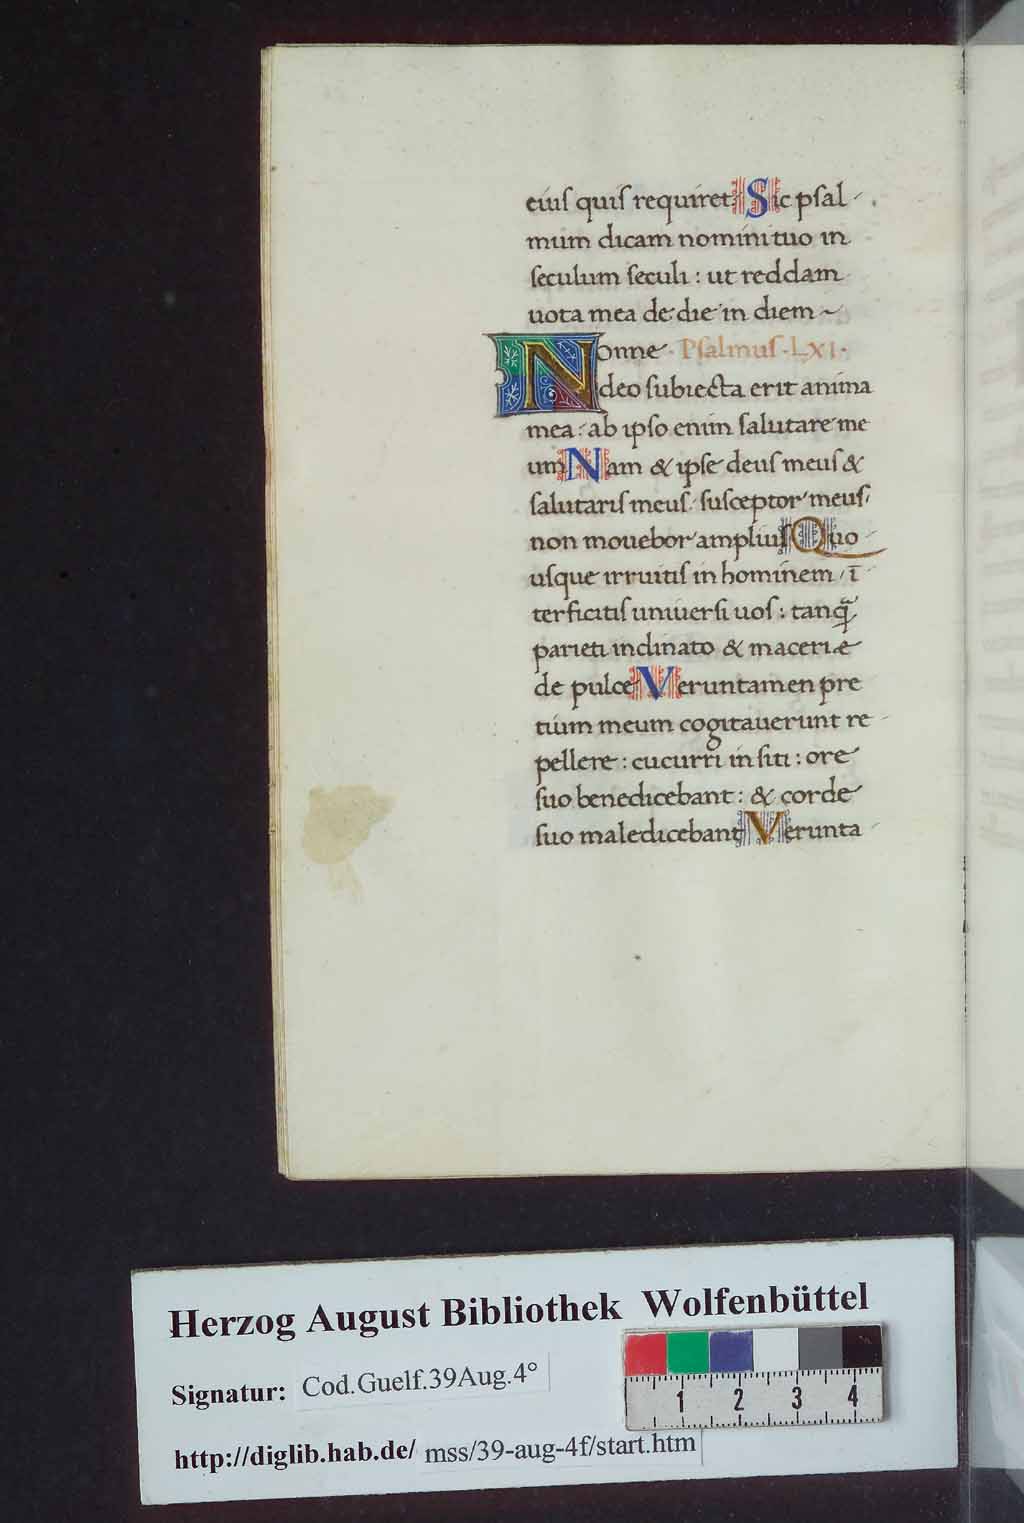 eiuſ quiſ requiret Sic pſal
mum dicam nomini tuo in
ſeculum ſeculi : ut reddam
uota mea de die in diem ~
Nonne Pſalmuſ · LXI ·
deo ſubiecta erit anima
mea : ab ipſo enim ſalutare me
um Nam & ipſe deuſ meuſ &
ſalutariſ meuſ ſuſceptor meuſ
non mouebor ampliuſ Quo
uſque irruitiſ in hominem / ī
terficitiſ uniuerſi uoſ : tanq̄
parieti inclinato & maceriæ
de pulce Veruntamen pre
tium meum cogitauerunt re
pellere : cucurri in ſiti : ore
ſuo benedicebant : & corde
ſuo maledicebant Verunta
Herzog August Bibliothek Wolfenbüttel
Signatur: Cod.Guelf.39Aug.4°
1 2 3 4
http://diglib.hab.de/ mss/39-aug-4f/start.htm